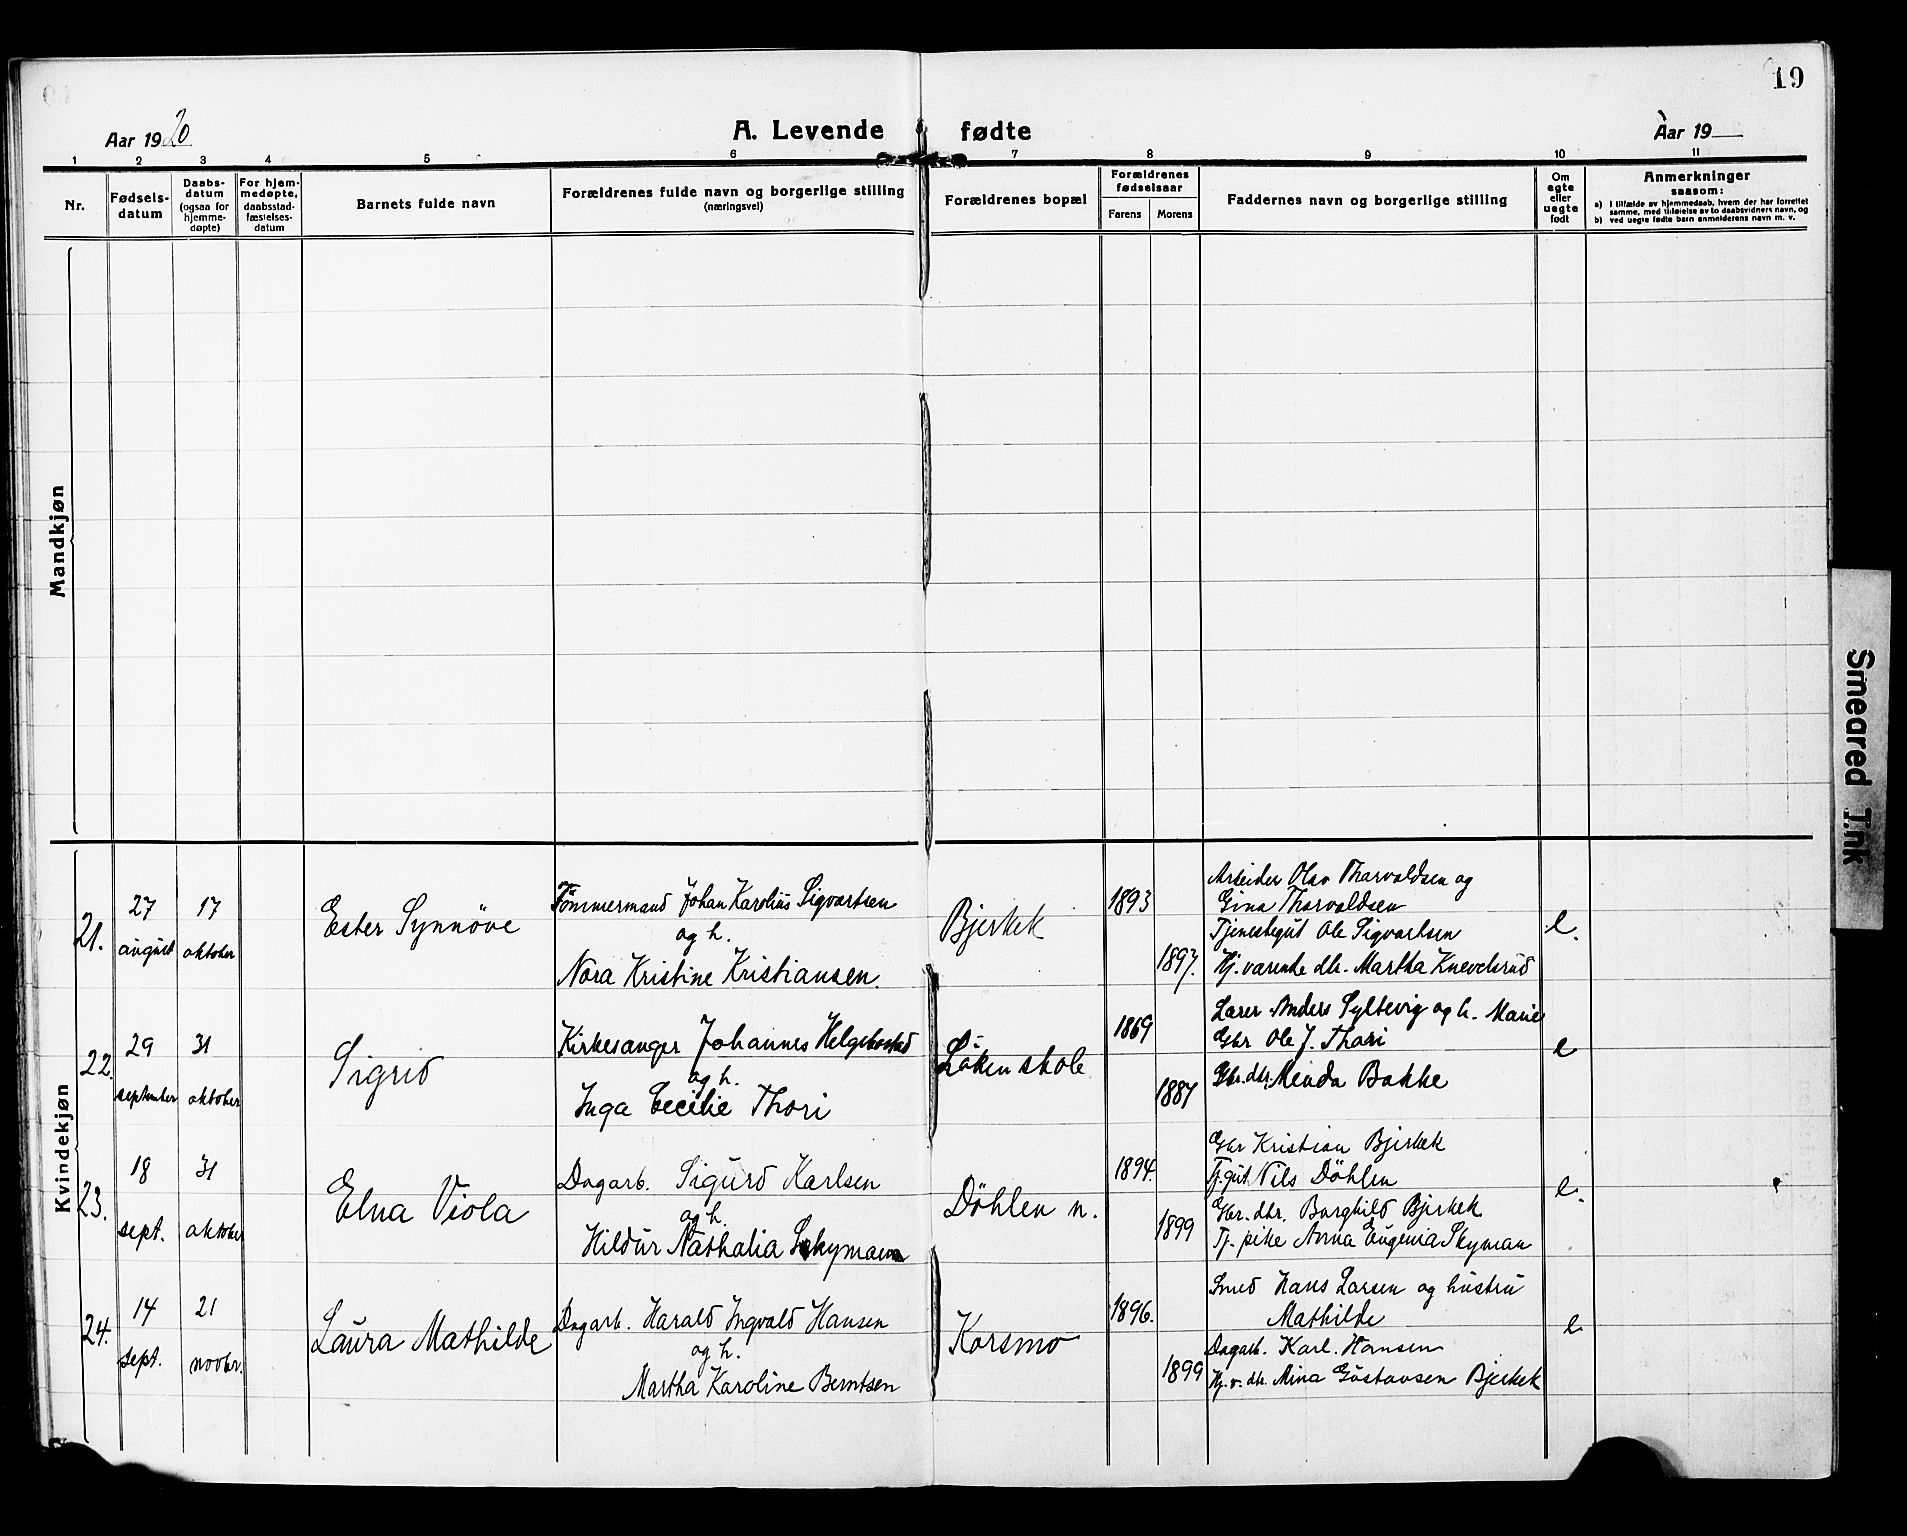 19
Aar 1920
A. Levende fødte
Aar 19
1 2 3 4 5 6 7 8 9 10 11
Nr.
Fødsels-
datum
Daabs-
datum
(ogsaa for
hjemme-
døpte)
For hjem-
medøpte,
daabsstad-
fæstelses-
datum
Barnets fulde navn
Forældrenes fulde navn og borgerlige stilling
(næringsvei)
Forældrenes bopæl
Forældrenes
fødselsaar
Farens
Morens
Faddernes navn og borgerlige stilling
Om
egte
eller
uegte
født
Anmerkninger
saasom:
a) i tilfælde av hjemmedaab, hvem der har forrettet
samme, med tilføielse av to daabsvidners navn, og
b) ved uegte fødte barn anmelderens navn m. v.
Mandkjøn
Kvindekjøn
21.
27
august
17
oktober
Ester Synnöve
Tömmermand Johan Karolius Sigvartsen
og h.
Nora Kristine Kristiansen.
Bjerkek
1893
1897.
Arbeider Olav Thorvaldsen og
Gina Thorvaldsen
Tjenestegut Ole Sigvartsen
Hj. værende dtr. Martha Knevelsrud
e.
22.
29
september
31
oktober
Sigrid
Kirkesanger Johannes Helgebostad
og h.
Inga Cecilie Thori
Löken skole
1869
1887
Lærer Anders Syltevig og h. Marie
Gbr Ole J. Thori
Gbr. dtr. Minda Bakke
e
23.
18
sept.
31
oktober
Elna Viola
Dagarb. Sigurd Karlsen
og h.
Hildur Nathalia Skymann
Döhlen n.
1894.
1899
Gbr Kristian Bjerkek
Tj.gut Nils Döhlen
Gbr. dtr. Borghild Bjerkek
Tj. pike Anna Eugenia Skyman
e.
24.
14
sept.
21
novbr.
Laura Mathilde
Dagarb. Harald Ingvald Hansen
og h.
Martha Karoline Berntsen
Korsmo
1896.
1899
Smed Hans Larsen og hustru
Mathilde
Dagarb. Karl. Hansen
Hj. v. dtr. Mina Gustavsen Bjerkek
e
Smeared Ink